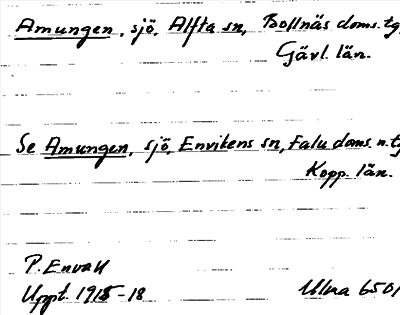 Amungen, sjö, Alfta sn, Bollnäs doms. tg,
Gävl. län.
Se Amungen, sjö, Envikens sn, Falu doms. n. tg
Kopp. län.
P. Envall
Uppt. 1915-18
Ullna 6501